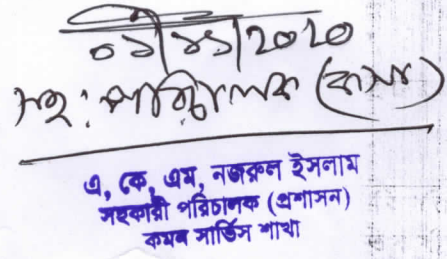 ০১/১১/২০২০
সহ: পরিচালক (কসা)
এ, কে, এম, নজরুল ইসলাম
সহকারী পরিচালক (প্রশাসন)
কমন সার্ভিস শাখা